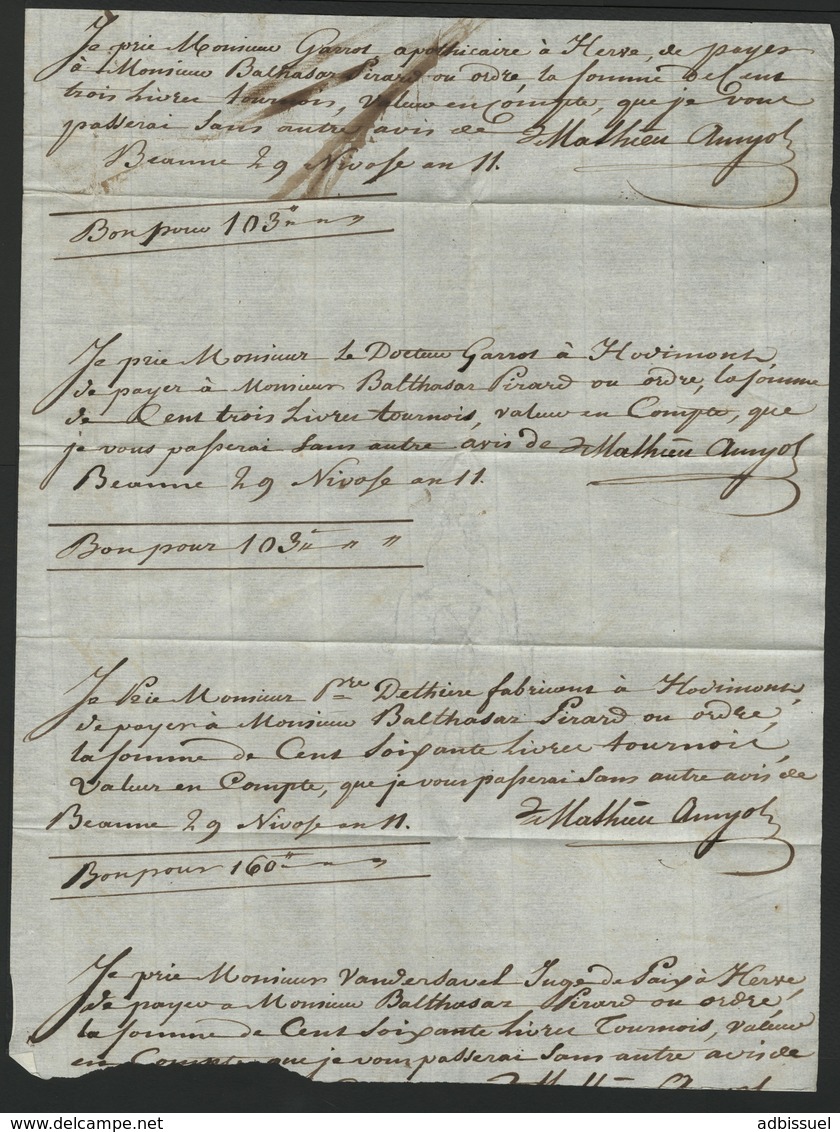 Je prie Monsieur Garrot apothicaire à Herve, de payer
à Monsieur Balthasar Pirard ou ordré, la somme de Cent
trois Livres tournois, valeur en Compte, que je vous
passerai sans autre avis de Mathieu Amyot
Beaune 29 Nivose an 11.
Bon pour 103" " " "
Je prie Monsieur Le Docteur Garrot à Hodimont
de payer à Monsieur Balthasar Pirard ou ordre, la somme
de Cent trois Livres tournois, valeur en Compte, que
je vous passerai sans autre avis de Mathieu Amyot
Beaune 29 Nivose an 11.
Bon pour 103" " "
Je Prie Monsieur Pre Dethiere fabricant à Hodimont,
de payer à Monsieur Balthasar Pirard ou ordre,
la somme de Cent Soixante Livres tournois,
Valeur en Compte, que je vous passerai sans autre avis de
Beaune 29 Nivose an 11. Mathieu Amyot
Bon pour 160" " "
Je prie Monsieur Vandersavel Juge de Paix à Herve
de payer a Monsieur Balthasar Pirard ou ordré,
la somme de Cent Soixante Livres Tournois, valeur
en Compte que je vous passerai sans autre avis de
Mathieu Amyot
adbissuel